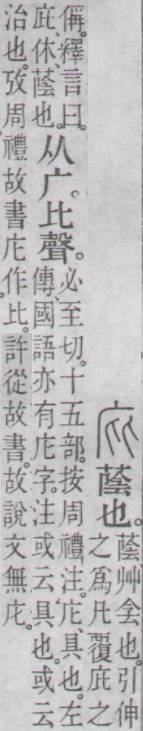 庇蔭也。
蔭艸侌也。引伸
之爲凡覆庇之
偁。釋言曰。
庇、休、蔭也。
从广。比聲。
必至切。十五部。按周禮注。庀、具也。左
傳、國語亦有庀字。注或云具也。或云
治也。攷周禮故書庀作比。許從故書。故說文無庀。